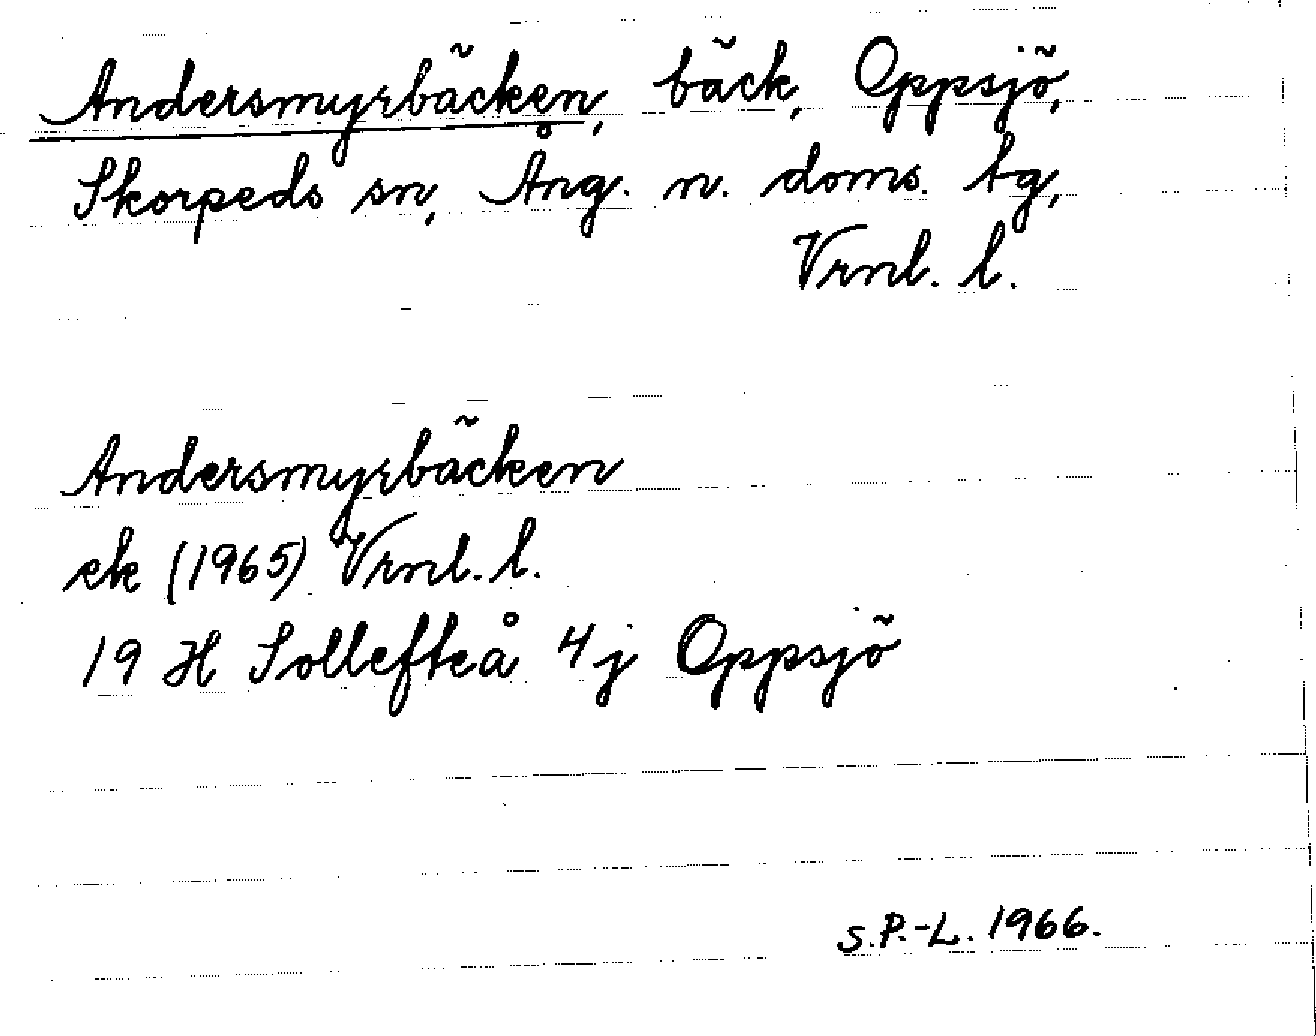 Andersmyrbäcken, bäck, Oppsjö,
Skorpeds sn, Ång. n. doms. tg,
Vrnl. l.
Andersmyrbäcken
ek (1965) Vrnl. l.
19 H Sollefteå 4j Oppsjö
S.P.-L. 1966.